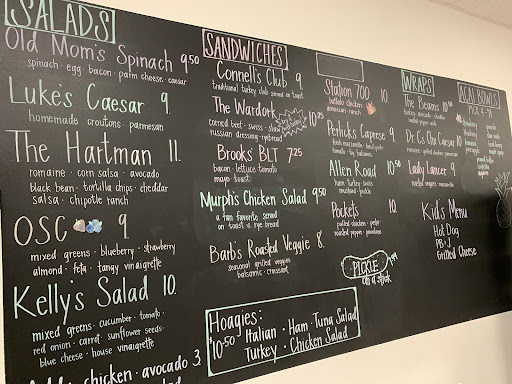 SALADS
Old Mom's Spinach 9.50
spinach · egg · bacon · parm cheese · caesar
Luke's Caesar 9.
homemade croutons · parmesan
The Hartman 11.
romaine · corn salsa · avocado
black bean · tortilla chips · cheddar
salsa · chipotle ranch
OSC 9.
mixed greens · blueberry · strawberry
almond · feta · tangy vinaigrette
Kelly's Salad 10.
mixed greens · cucumber · tomato ·
red onion · carrot · sunflower seeds ·
blue cheese · house vinaigrette
chicken · avocado 3.
SANDWICHES
Connell's Club 9.
traditional turkey club served on toast
The Wardork 10.25
corned beef · swiss · slaw
russian dressing · ryebread
Brooks BLT 7.25
bacon · lettuce · tomato
mayo · toast
Murph's Chicken Salad 9.50
a fan favorite, served
on toast or rye bread
Barb's Roasted Veggie 8.
seasonal grilled veggies
balsamic · croissant
Hoagies:
10.50 · Italian · Ham · Tuna Salad
Turkey · Chicken Salad
Station 700 10.
buffalo chicken
ranch
Perlicks Caprese 9.
Allen Road 10.50
ham · turkey · swiss
Pockets 10.
pulled chicken · pesto
roasted pepper · provolone
PICKLE
on a stick
WRAPS
The Beans 10.50
Dr. C's Chix Caesar 10.
Lady Lancer 9.
Kids Menu
Hot Dog
PB+J
Grilled Cheese
ACAI BOWLS